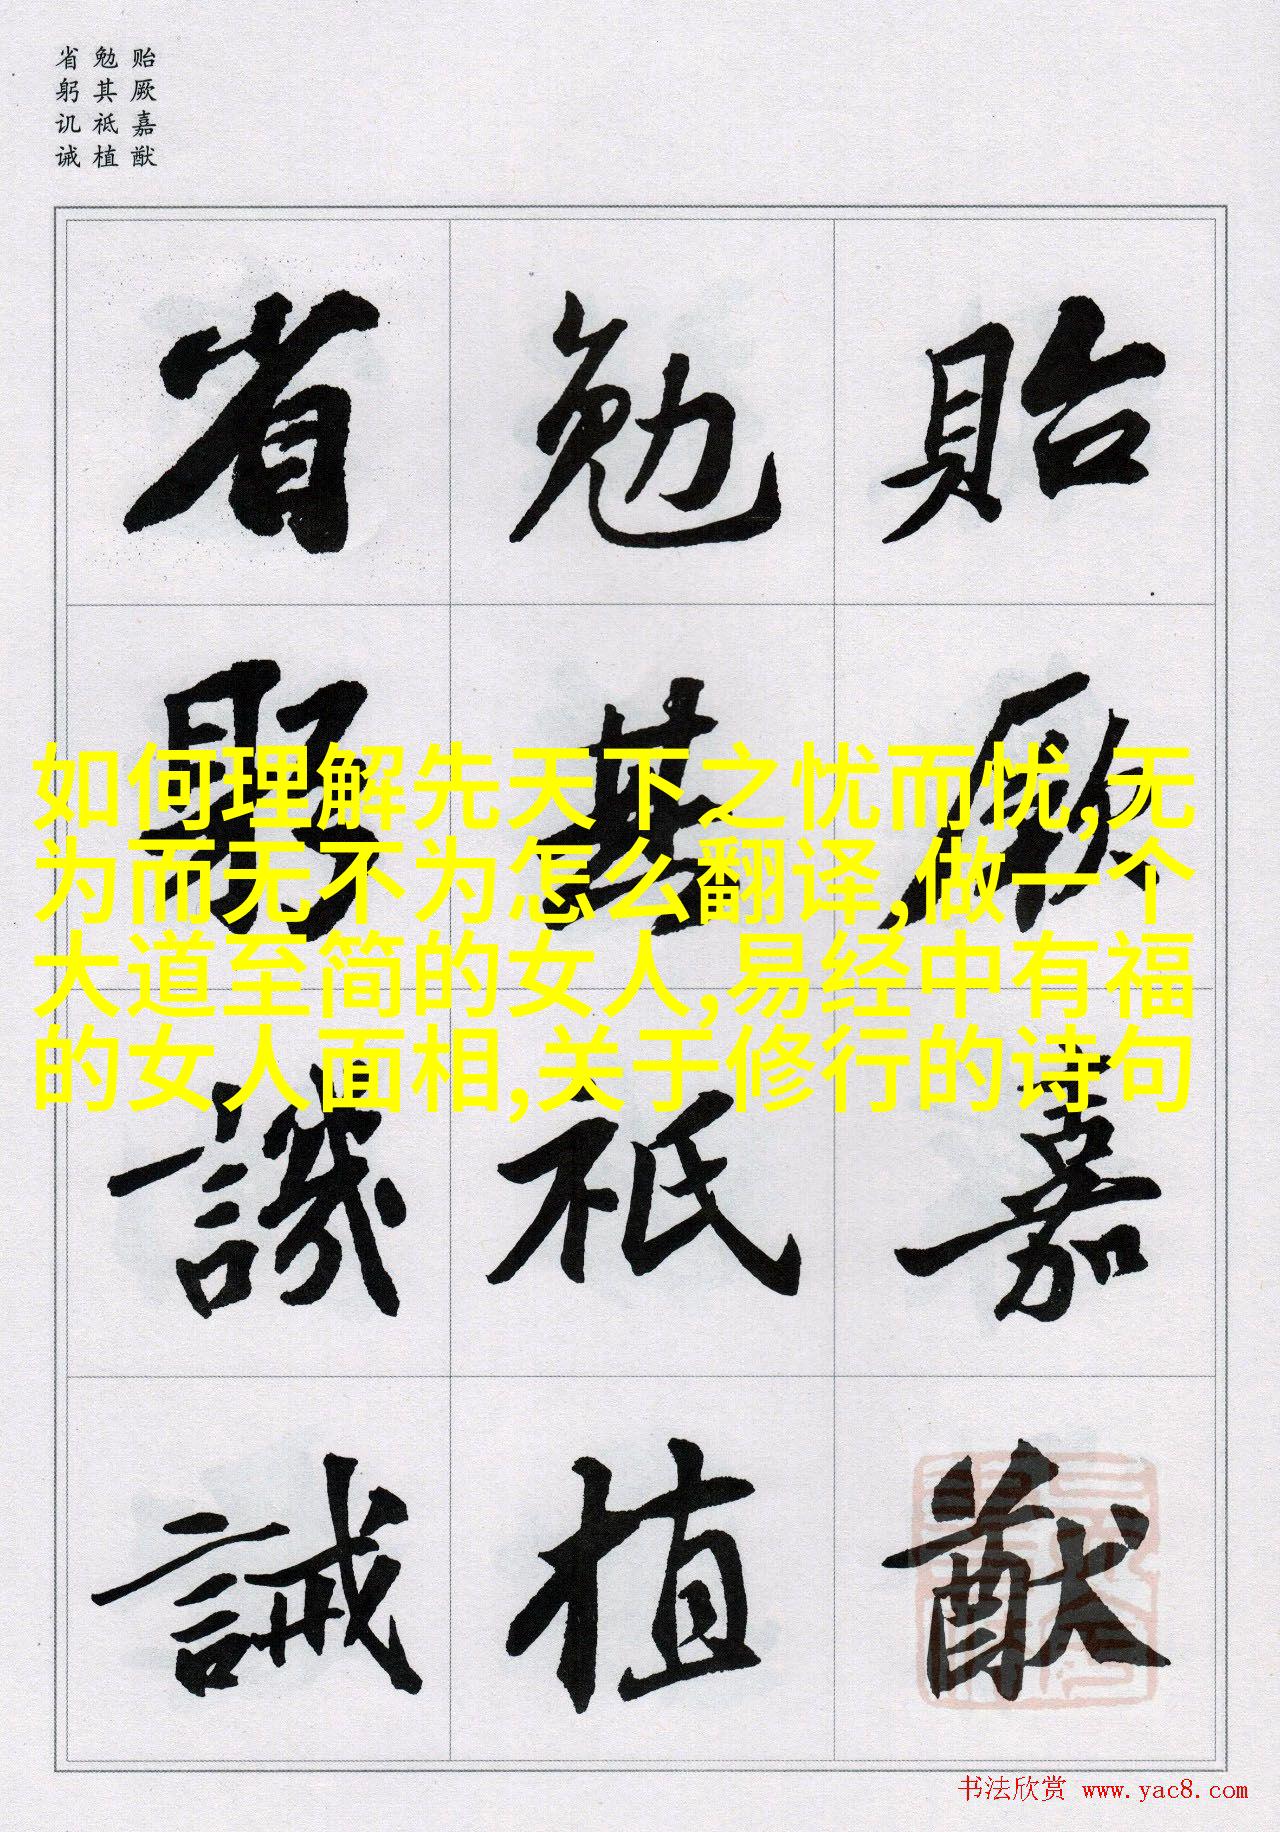 贻厥嘉猷
勉其祗植
省躬讥诫
貽厥嘉猷
勉其祗植
省躬譏誡
如何理解先天下之忧而忧,无
为而无不为怎么翻译,做一个
大道至简的女人,易经中有福
的女人面相,关于修行的诗句
书法欣赏 www.yac8.com